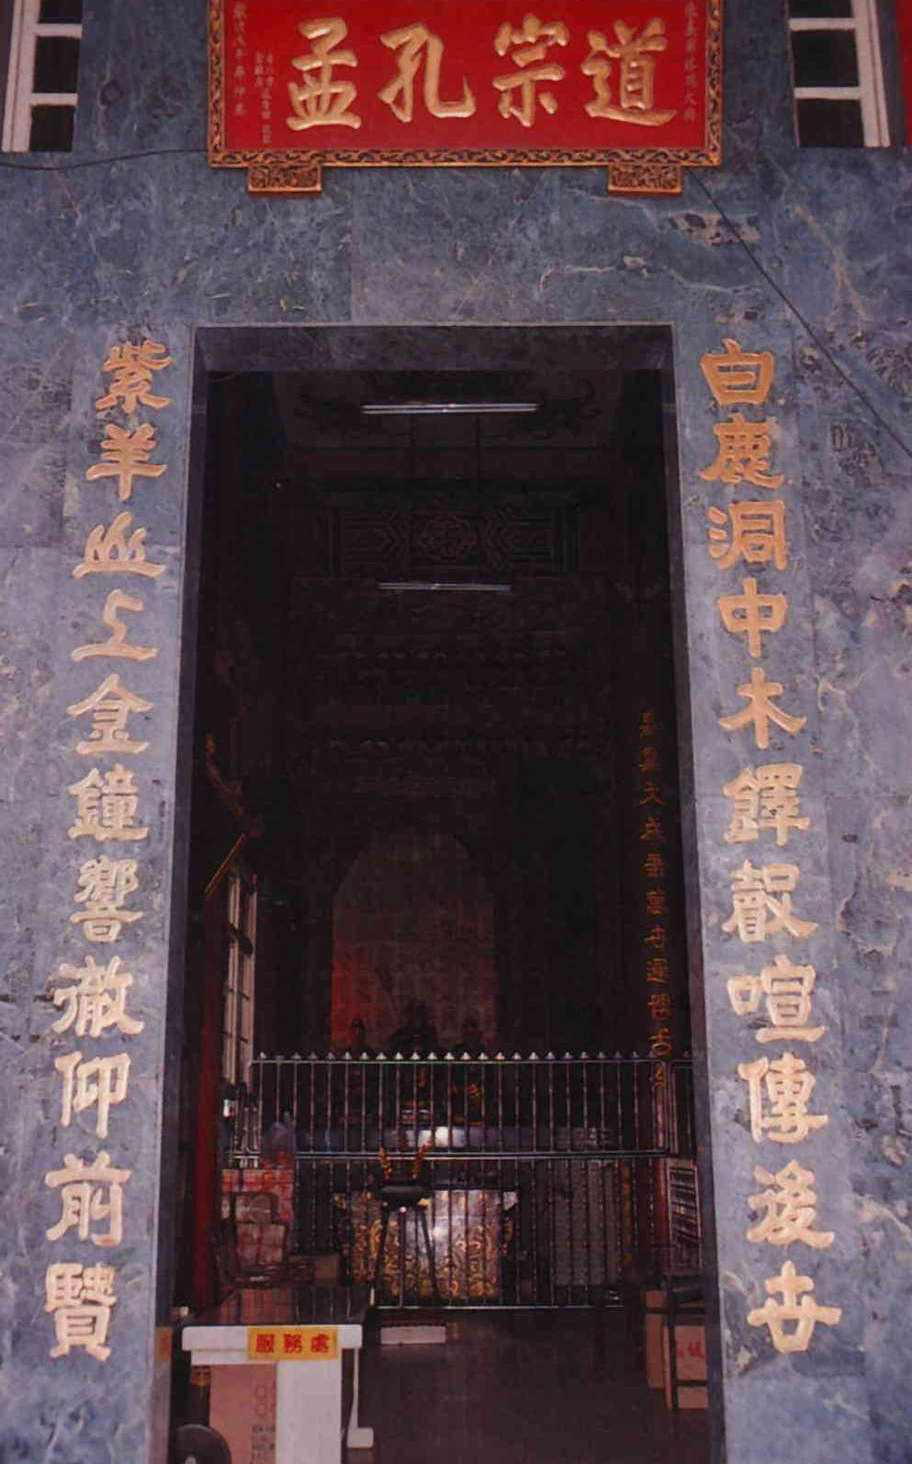 道宗孔孟
白鹿洞中木鐸聲喧傳後世
紫羊山上金鐘響徹仰前賢
服務處